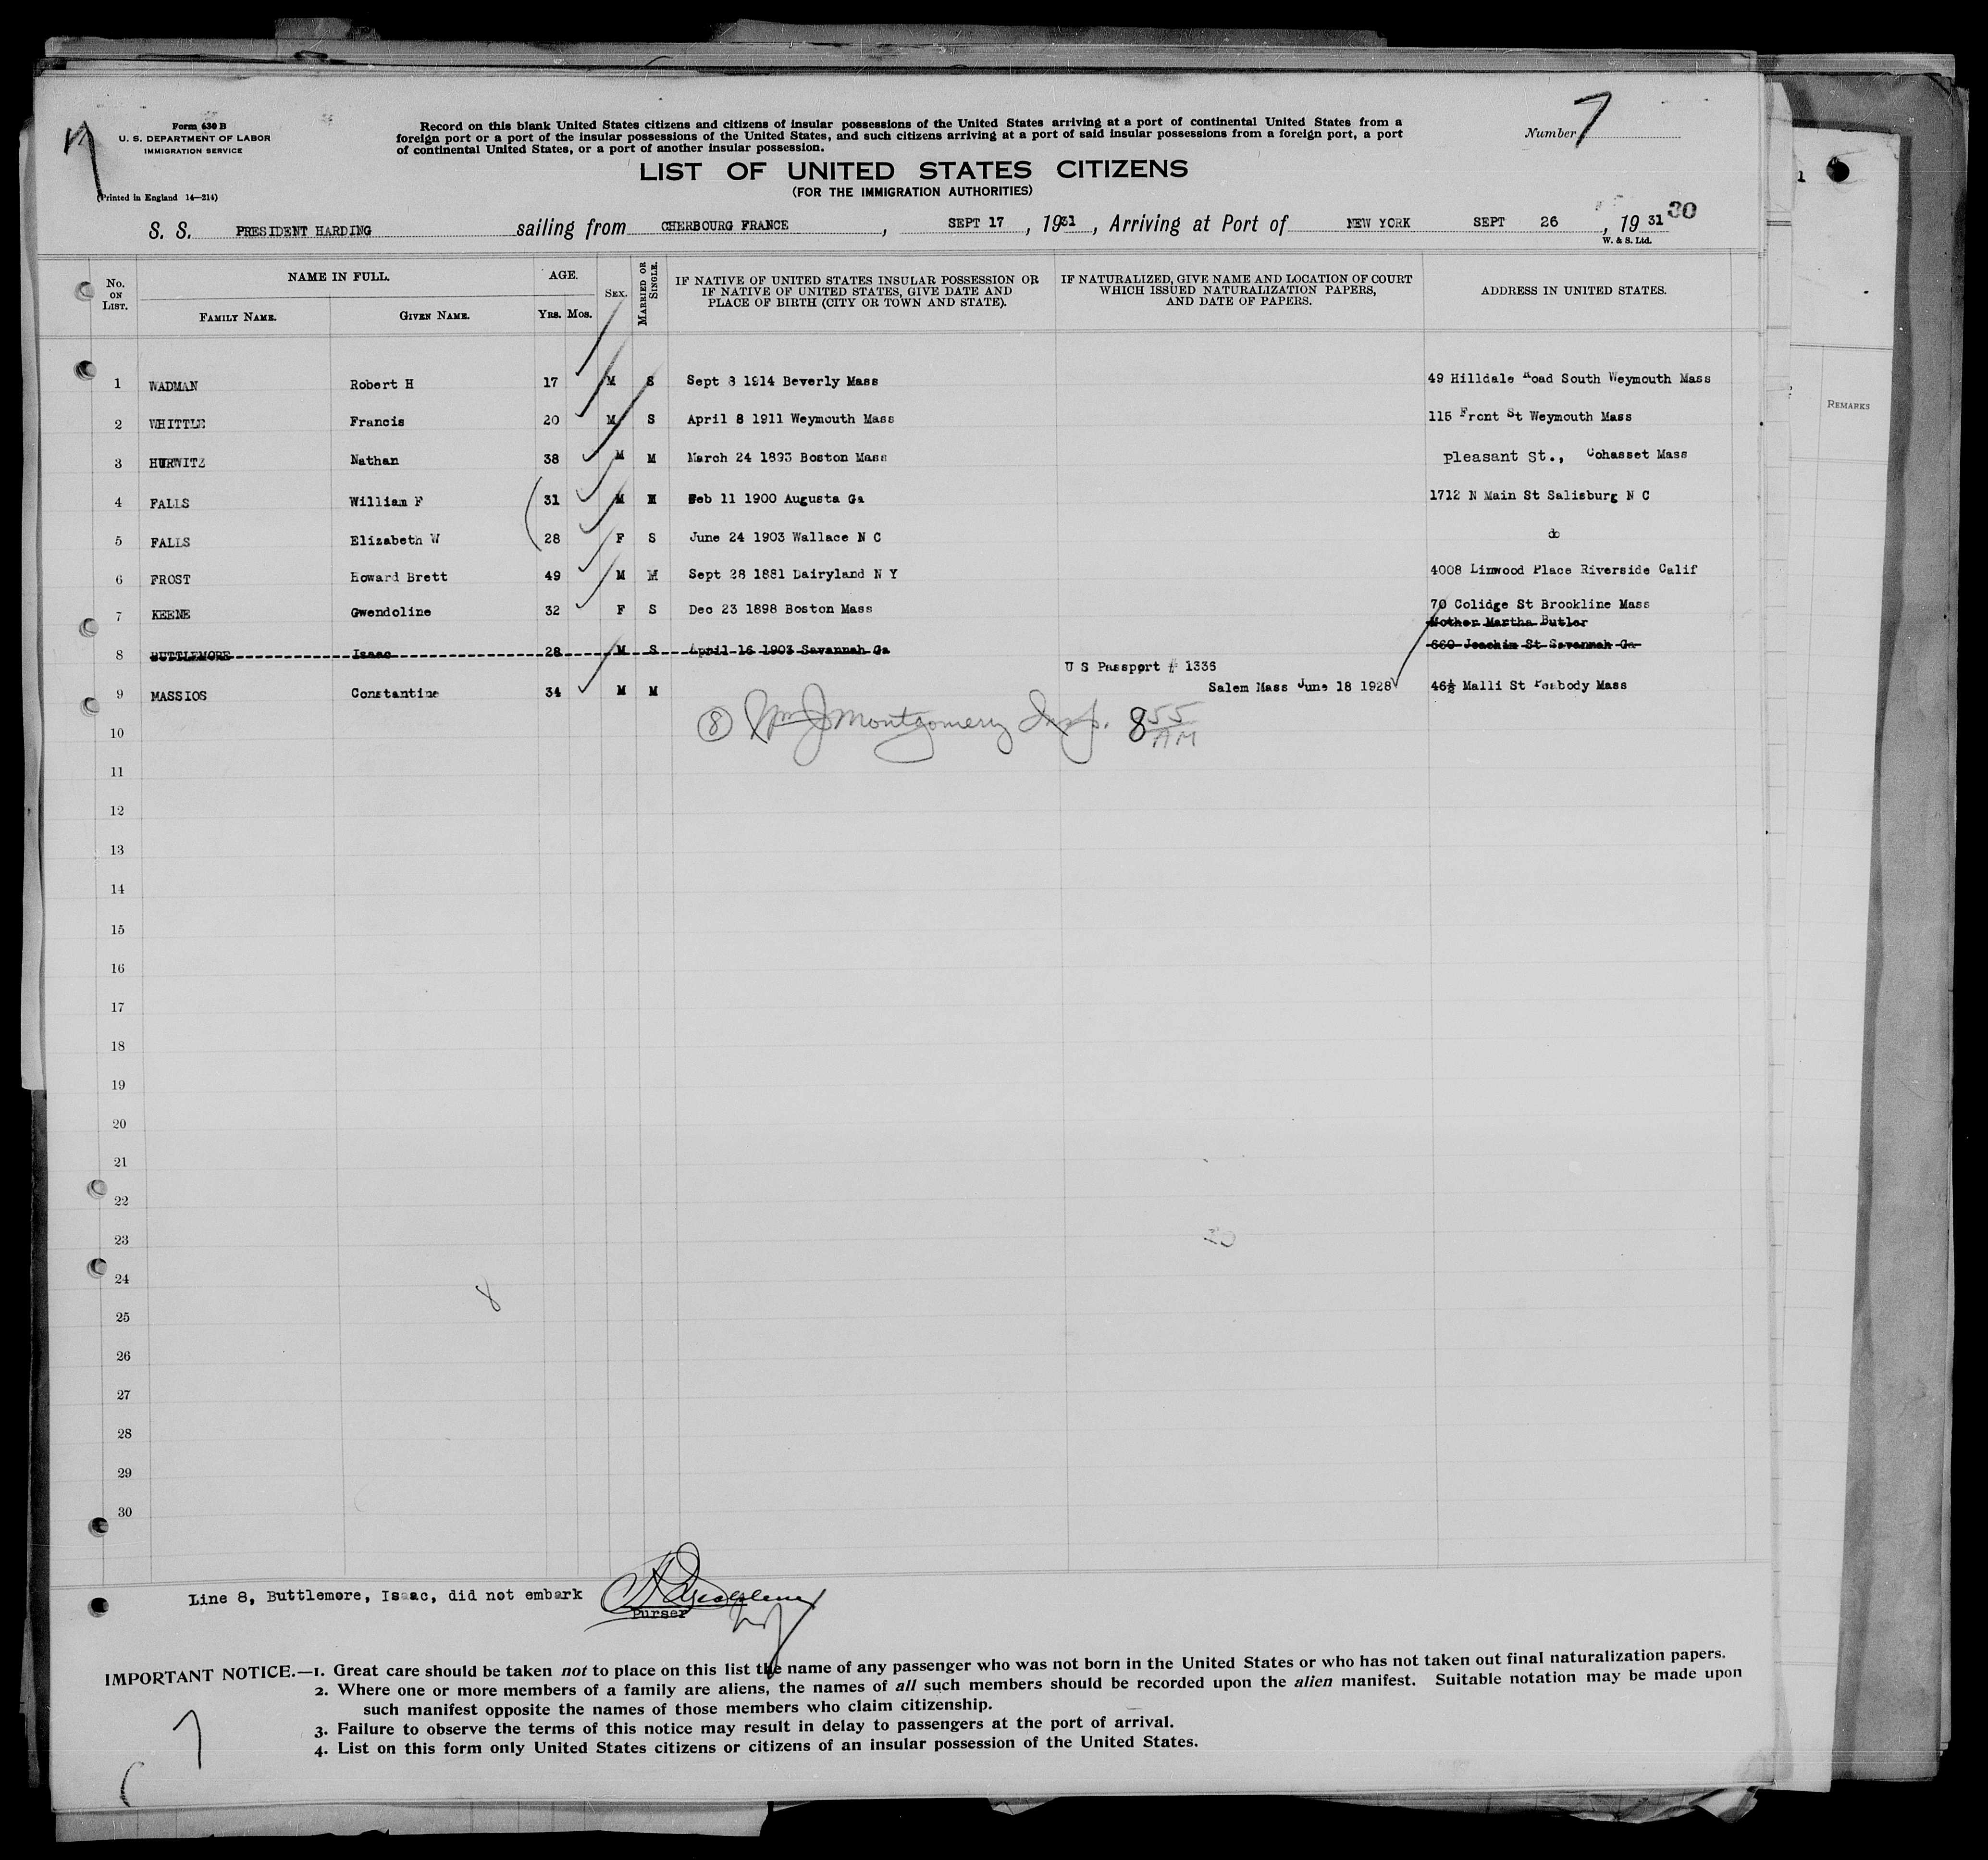 Form 630 B
U. S. DEPARTMENT OF LABOR
IMMIGRATION SERVICE
(Printed in England 14—214)
Record on this blank United States citizens and citizens of insular possessions of the United States arriving at a port of continental United States from a
foreign port or a port of the insular possessions of the United States, and such citizens arriving at a port of said insular possessions from a foreign port, a port
of continental United States, or a port of another insular possession.
Number 7
LIST OF UNITED STATES CITIZENS
(FOR THE IMMIGRATION AUTHORITIES)
S. S. PRESIDENT HARDING sailing from CHERBOURG FRANCE, SEPT 17, 1931, Arriving at Port of NEW YORK SEPT 26, 1931 30
W. & S. Ltd.
No. ON LIST. NAME IN FULL. AGE. SEX. MARRIED OR SINGLE. IF NATIVE OF UNITED STATES INSULAR POSSESSION OR IF NATIVE OF UNITED STATES, GIVE DATE AND PLACE OF BIRTH (CITY OR TOWN AND STATE). IF NATURALIZED, GIVE NAME AND LOCATION OF COURT WHICH ISSUED NATURALIZATION PAPERS, AND DATE OF PAPERS. ADDRESS IN UNITED STATES.
FAMILY NAME. GIVEN NAME. YRS. MOS.
REMARKS
1 WADMAN Robert H 17 M S Sept 8 1914 Beverly Mass 49 Hilldale Road South Weymouth Mass
2 WHITTLE Francis 20 M S April 8 1911 Weymouth Mass 115 Front St Weymouth Mass
3 HURWITZ Nathan 38 M M March 24 1893 Boston Mass Pleasant St., Cohasset Mass
4 FALLS William F 31 M M Feb 11 1900 Augusta Ga 1712 N Main St Salisburg N C
5 FALLS Elizabeth W 28 F S June 24 1903 Wallace N C do
6 FROST Howard Brett 49 M M Sept 28 1881 Dairyland N Y 4008 Linwood Place Riverside Calif
7 KEENE Gwendoline 32 F S Dec 23 1898 Boston Mass 70 Colidge St Brookline Mass
Mother Martha Butler
8 BUTTLEMORE Isaac 28 M S April 16 1903 Savannah Ga 660 Joachim St Savannah Ga
U S Passport # 1336
9 MASSIOS Constantine 34 M M Salem Mass June 18 1928 46½ Malli St Peabody Mass
8 Wm J Montgomery Insp. 8 55 AM
10
11
12
13
14
15
16
17
18
19
20
21
22
23
24
25
26
27
28
29
30
8
Line 8, Buttlemore, Isaac, did not embark
Purser
IMPORTANT NOTICE.—1. Great care should be taken not to place on this list the name of any passenger who was not born in the United States or who has not taken out final naturalization papers.
2. Where one or more members of a family are aliens, the names of all such members should be recorded upon the alien manifest. Suitable notation may be made upon
such manifest opposite the names of those members who claim citizenship.
3. Failure to observe the terms of this notice may result in delay to passengers at the port of arrival.
4. List on this form only United States citizens or citizens of an insular possession of the United States.
7